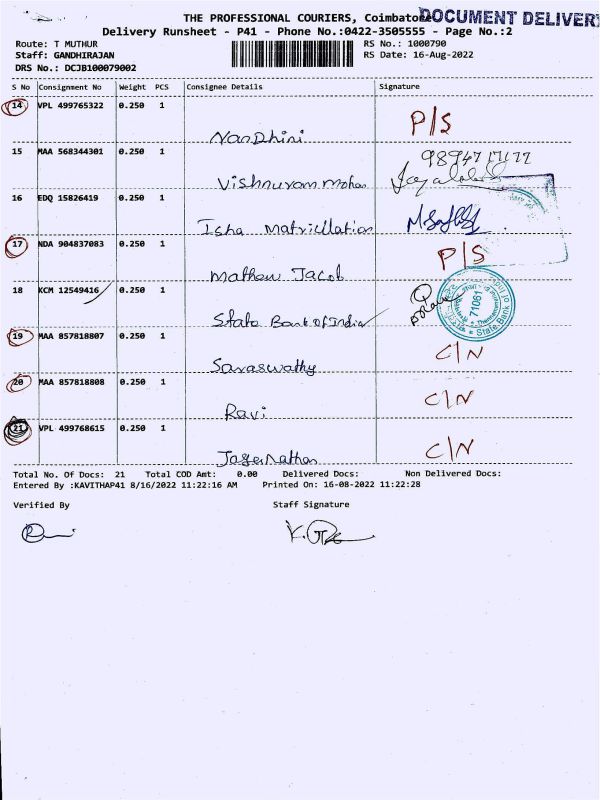 THE PROFESSIONAL COURIERS, Coimbatore
DOCUMENT DELIVER
Delivery Runsheet - P41 - Phone No.:0422-3505555 - Page No.:2
Route: T MUTHUR
RS No.: 1000790
Staff: GANDHIRAJAN
RS Date: 16-Aug-2022
DRS No.: DCJB100079002
S No Consignment No Weight PCS Consignee Details Signature
14 VPL 499765322 0.250 1 Nandhini P/S
15 MAA 568344301 0.250 1 Vishnuram mohan
16 EDQ 15826419 0.250 1 Isha Matricullation
17 NDA 904837083 0.250 1 Mathew Jacob P/S
18 KCM 12549416 0.250 1 State Bank of India 71061 State Bank
19 MAA 857818807 0.250 1 Saraswathy C/N
20 MAA 857818808 0.250 1 Ravi C/N
21 VPL 499768615 0.250 1 C/N
Total No. Of Docs: 21 Total COD Amt: 0.00 Delivered Docs: Non Delivered Docs:
Entered By :KAVITHAP41 8/16/2022 11:22:16 AM Printed On: 16-08-2022 11:22:28
Verified By Staff Signature